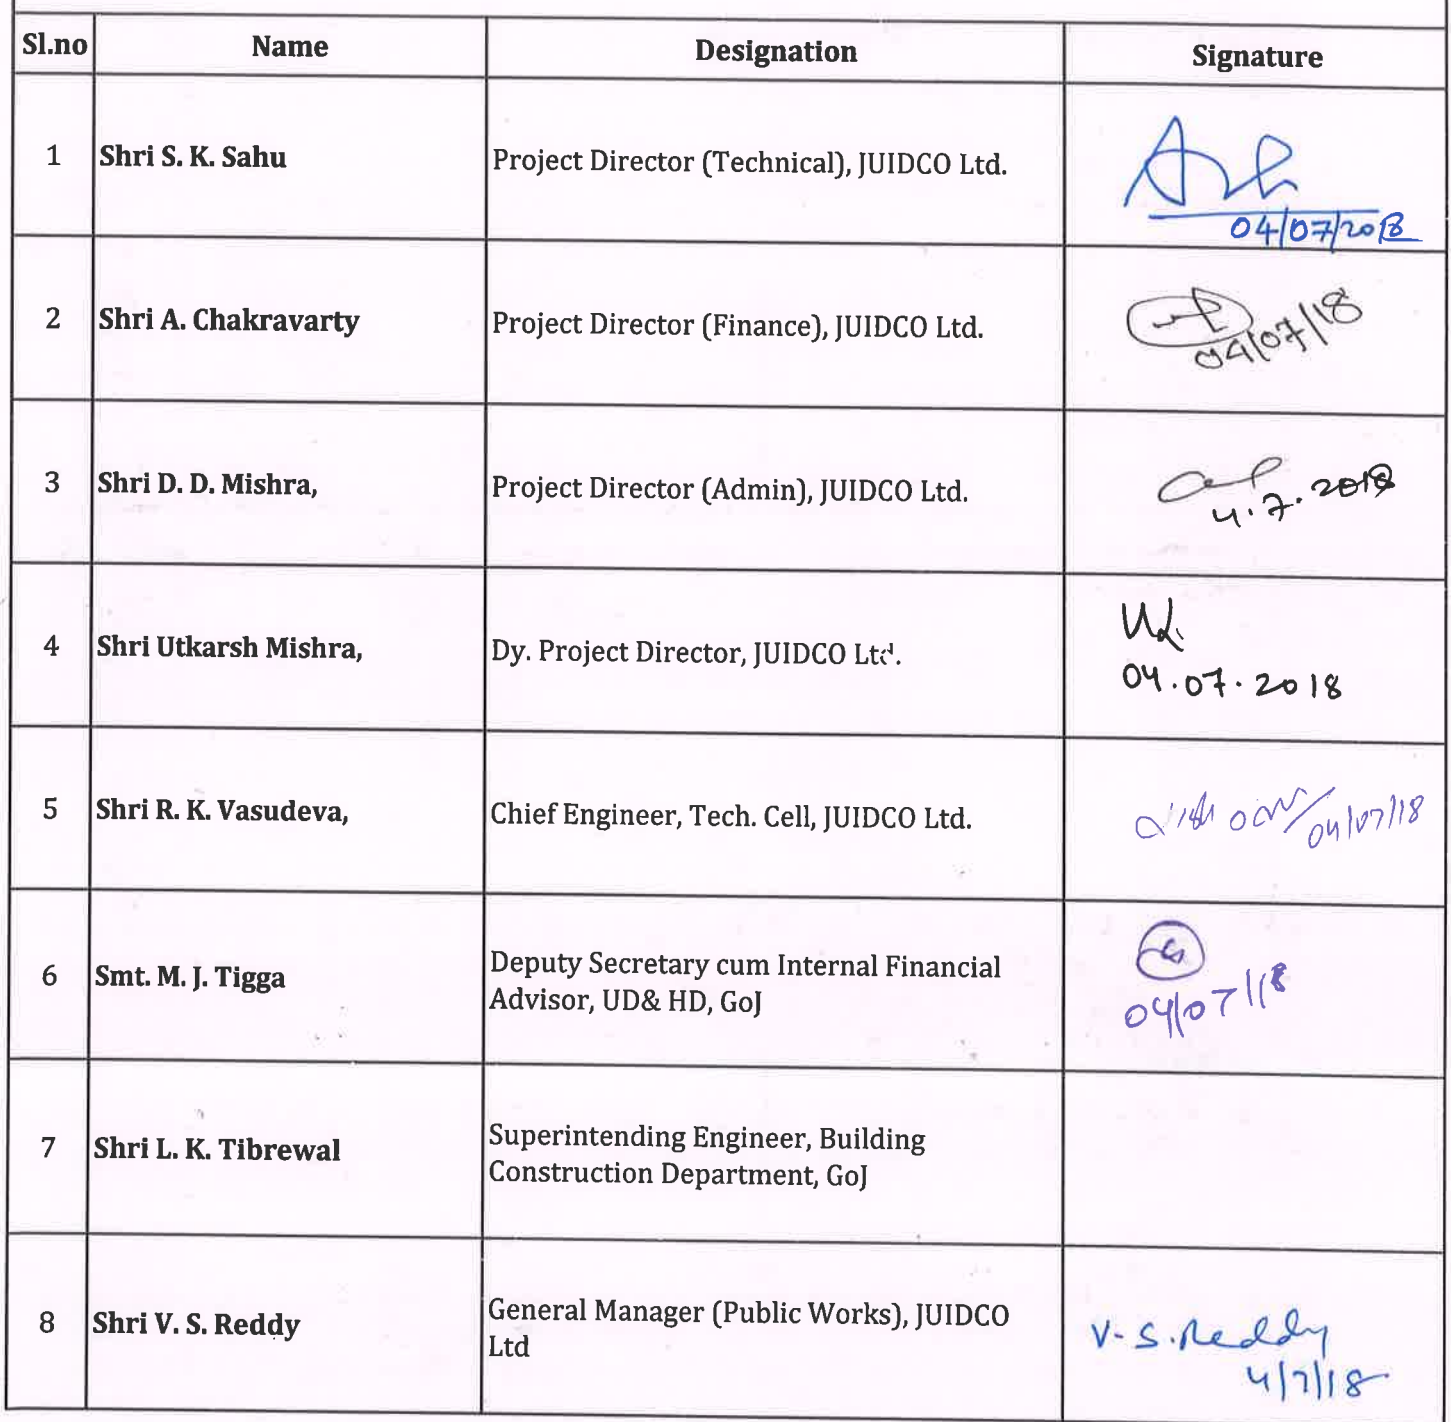 Sl.no Name Designation Signature
1 Shri S. K. Sahu Project Director (Technical), JUIDCO Ltd.
04/07/2018
2 Shri A. Chakravarty Project Director (Finance), JUIDCO Ltd.
04/07/18
3 Shri D. D. Mishra, Project Director (Admin), JUIDCO Ltd.
4.7.2018
4 Shri Utkarsh Mishra, Dy. Project Director, JUIDCO Ltd.
04.07.2018
5 Shri R. K. Vasudeva, Chief Engineer, Tech. Cell, JUIDCO Ltd.
04/07/18
6 Smt. M. J. Tigga Deputy Secretary cum Internal Financial
Advisor, UD& HD, GoJ
04/07/18
7 Shri L. K. Tibrewal Superintending Engineer, Building
Construction Department, GoJ
8 Shri V. S. Reddy General Manager (Public Works), JUIDCO
Ltd
V. S. Reddy
4/7/18